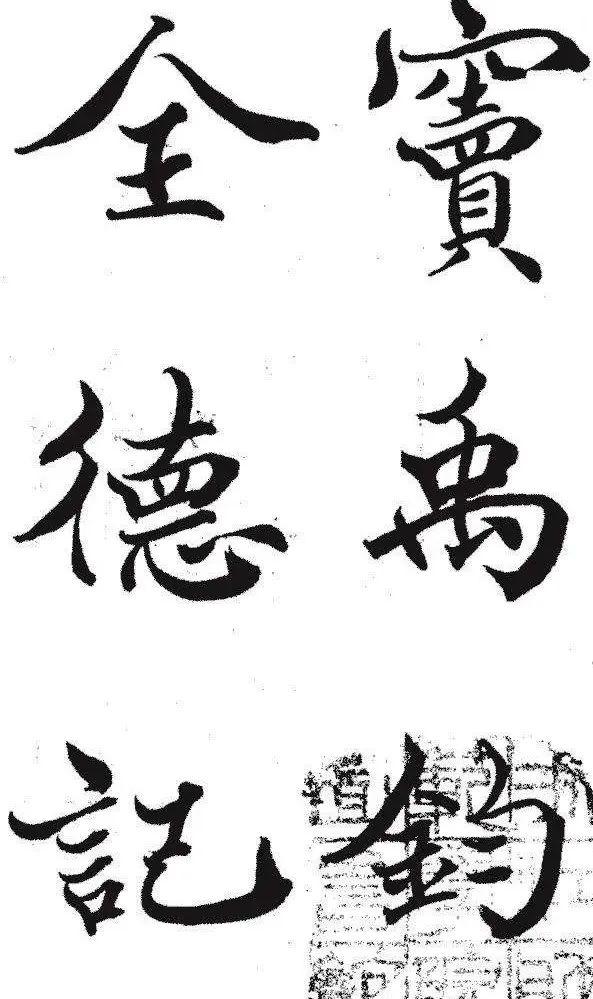 竇禹鈞
全德記